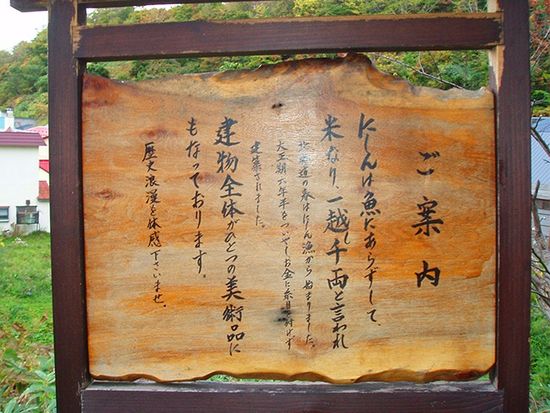 ご案内
にしんは魚にあらずして、
米なり、一越し千両と言われ
北海道の春はにしん漁から始まりました。
大正朝六年半をついやしお金に糸目を付けず
建築されました。
建物全体がひとつの美術品に
もなっております。
歴史浪漫を体感下さいませ。